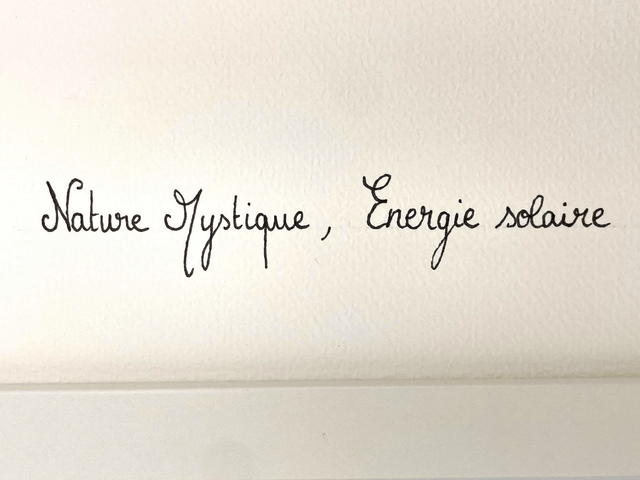 Nature Mystique, Energie solaire